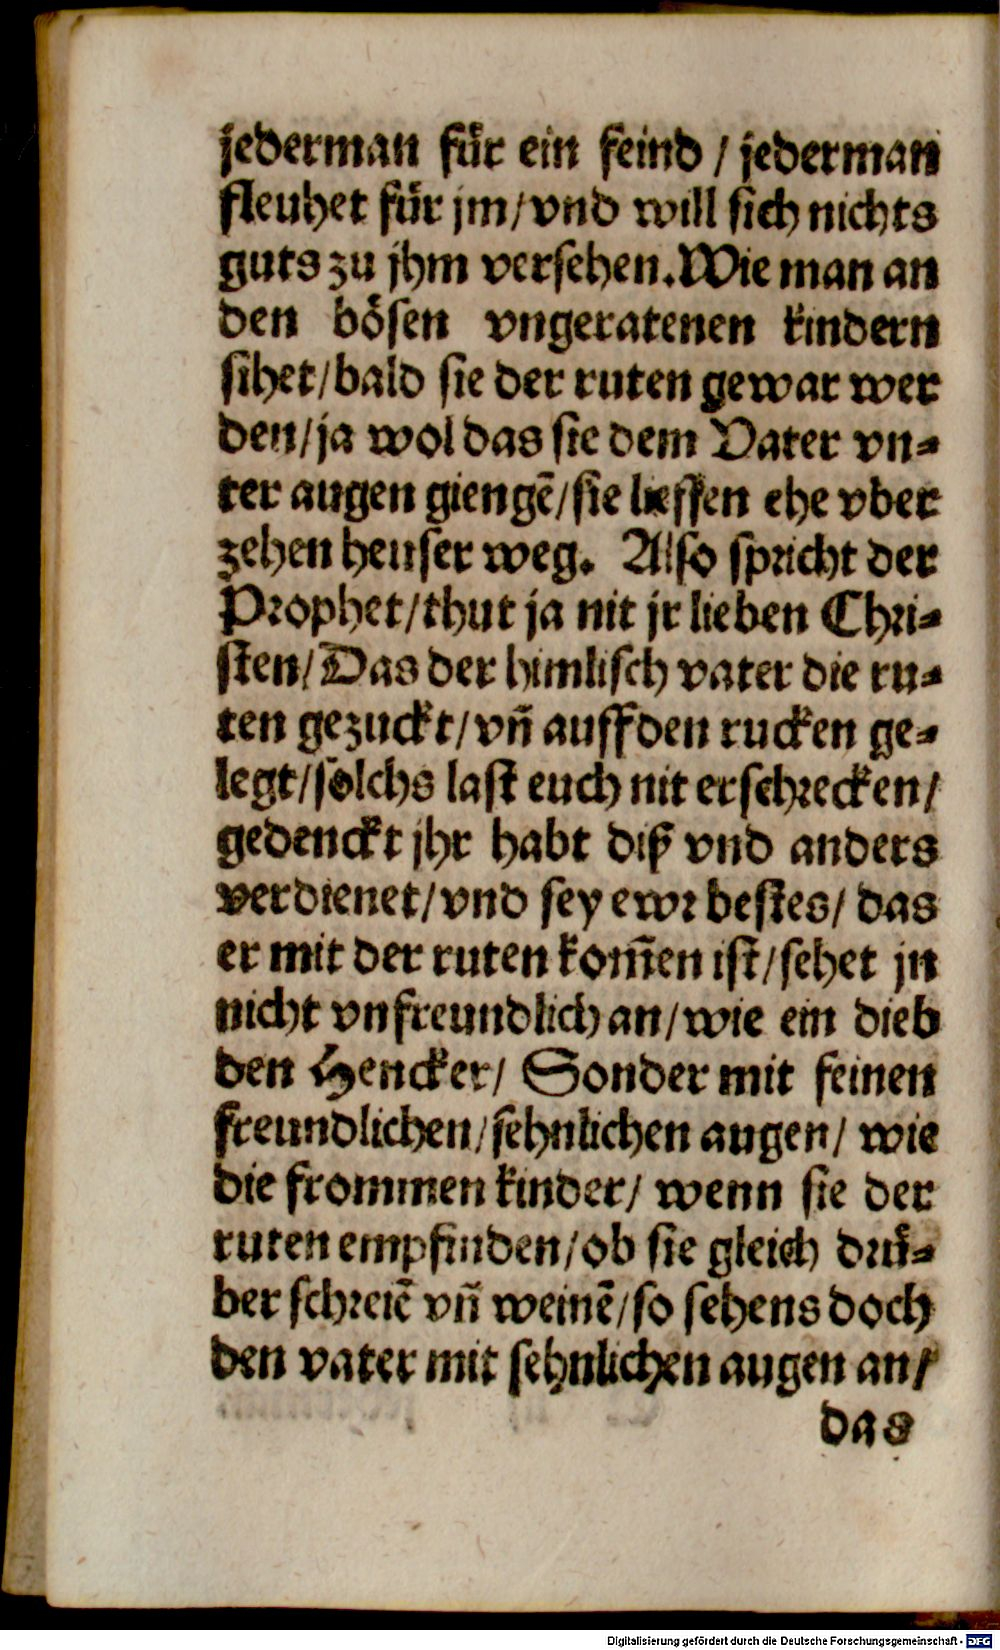 jederman fuͤr ein feind / jederman
fleuhet fuͤr jm / vnd will sich nichts
guts zu jhm versehen. Wie man an
den boͤsen vngeratenen kindern
sihet / bald sie der ruten gewar wer
den / ja wol das sie dem Vater vn-
ter augen giengē / sie lieffen ehe vber
zehen heuser weg. Also spricht der
Prophet / thut ja nit jr lieben Chri-
sten / Das der himlisch vater die ru-
ten gezuckt / vn̄ auff den rucken ge-
legt / solchs last euch nit erschrecken /
gedenckt jhr habt diß vnd anders
verdienet / vnd sey ewr bestes / das
er mit der ruten kom̄en ist / sehet jn
nicht vnfreundlich an / wie ein dieb
den Hencker / Sonder mit feinen
freundlichen / sehnlichen augen / wie
die frommen kinder / wenn sie der
ruten empfinden / ob sie gleich druͤ-
ber schreiē vn̄ weinē / so sehens doch
den vater mit sehnlichen augen an /
das
Digitalisierung gefördert durch die Deutsche Forschungsgemeinschaft - DFG